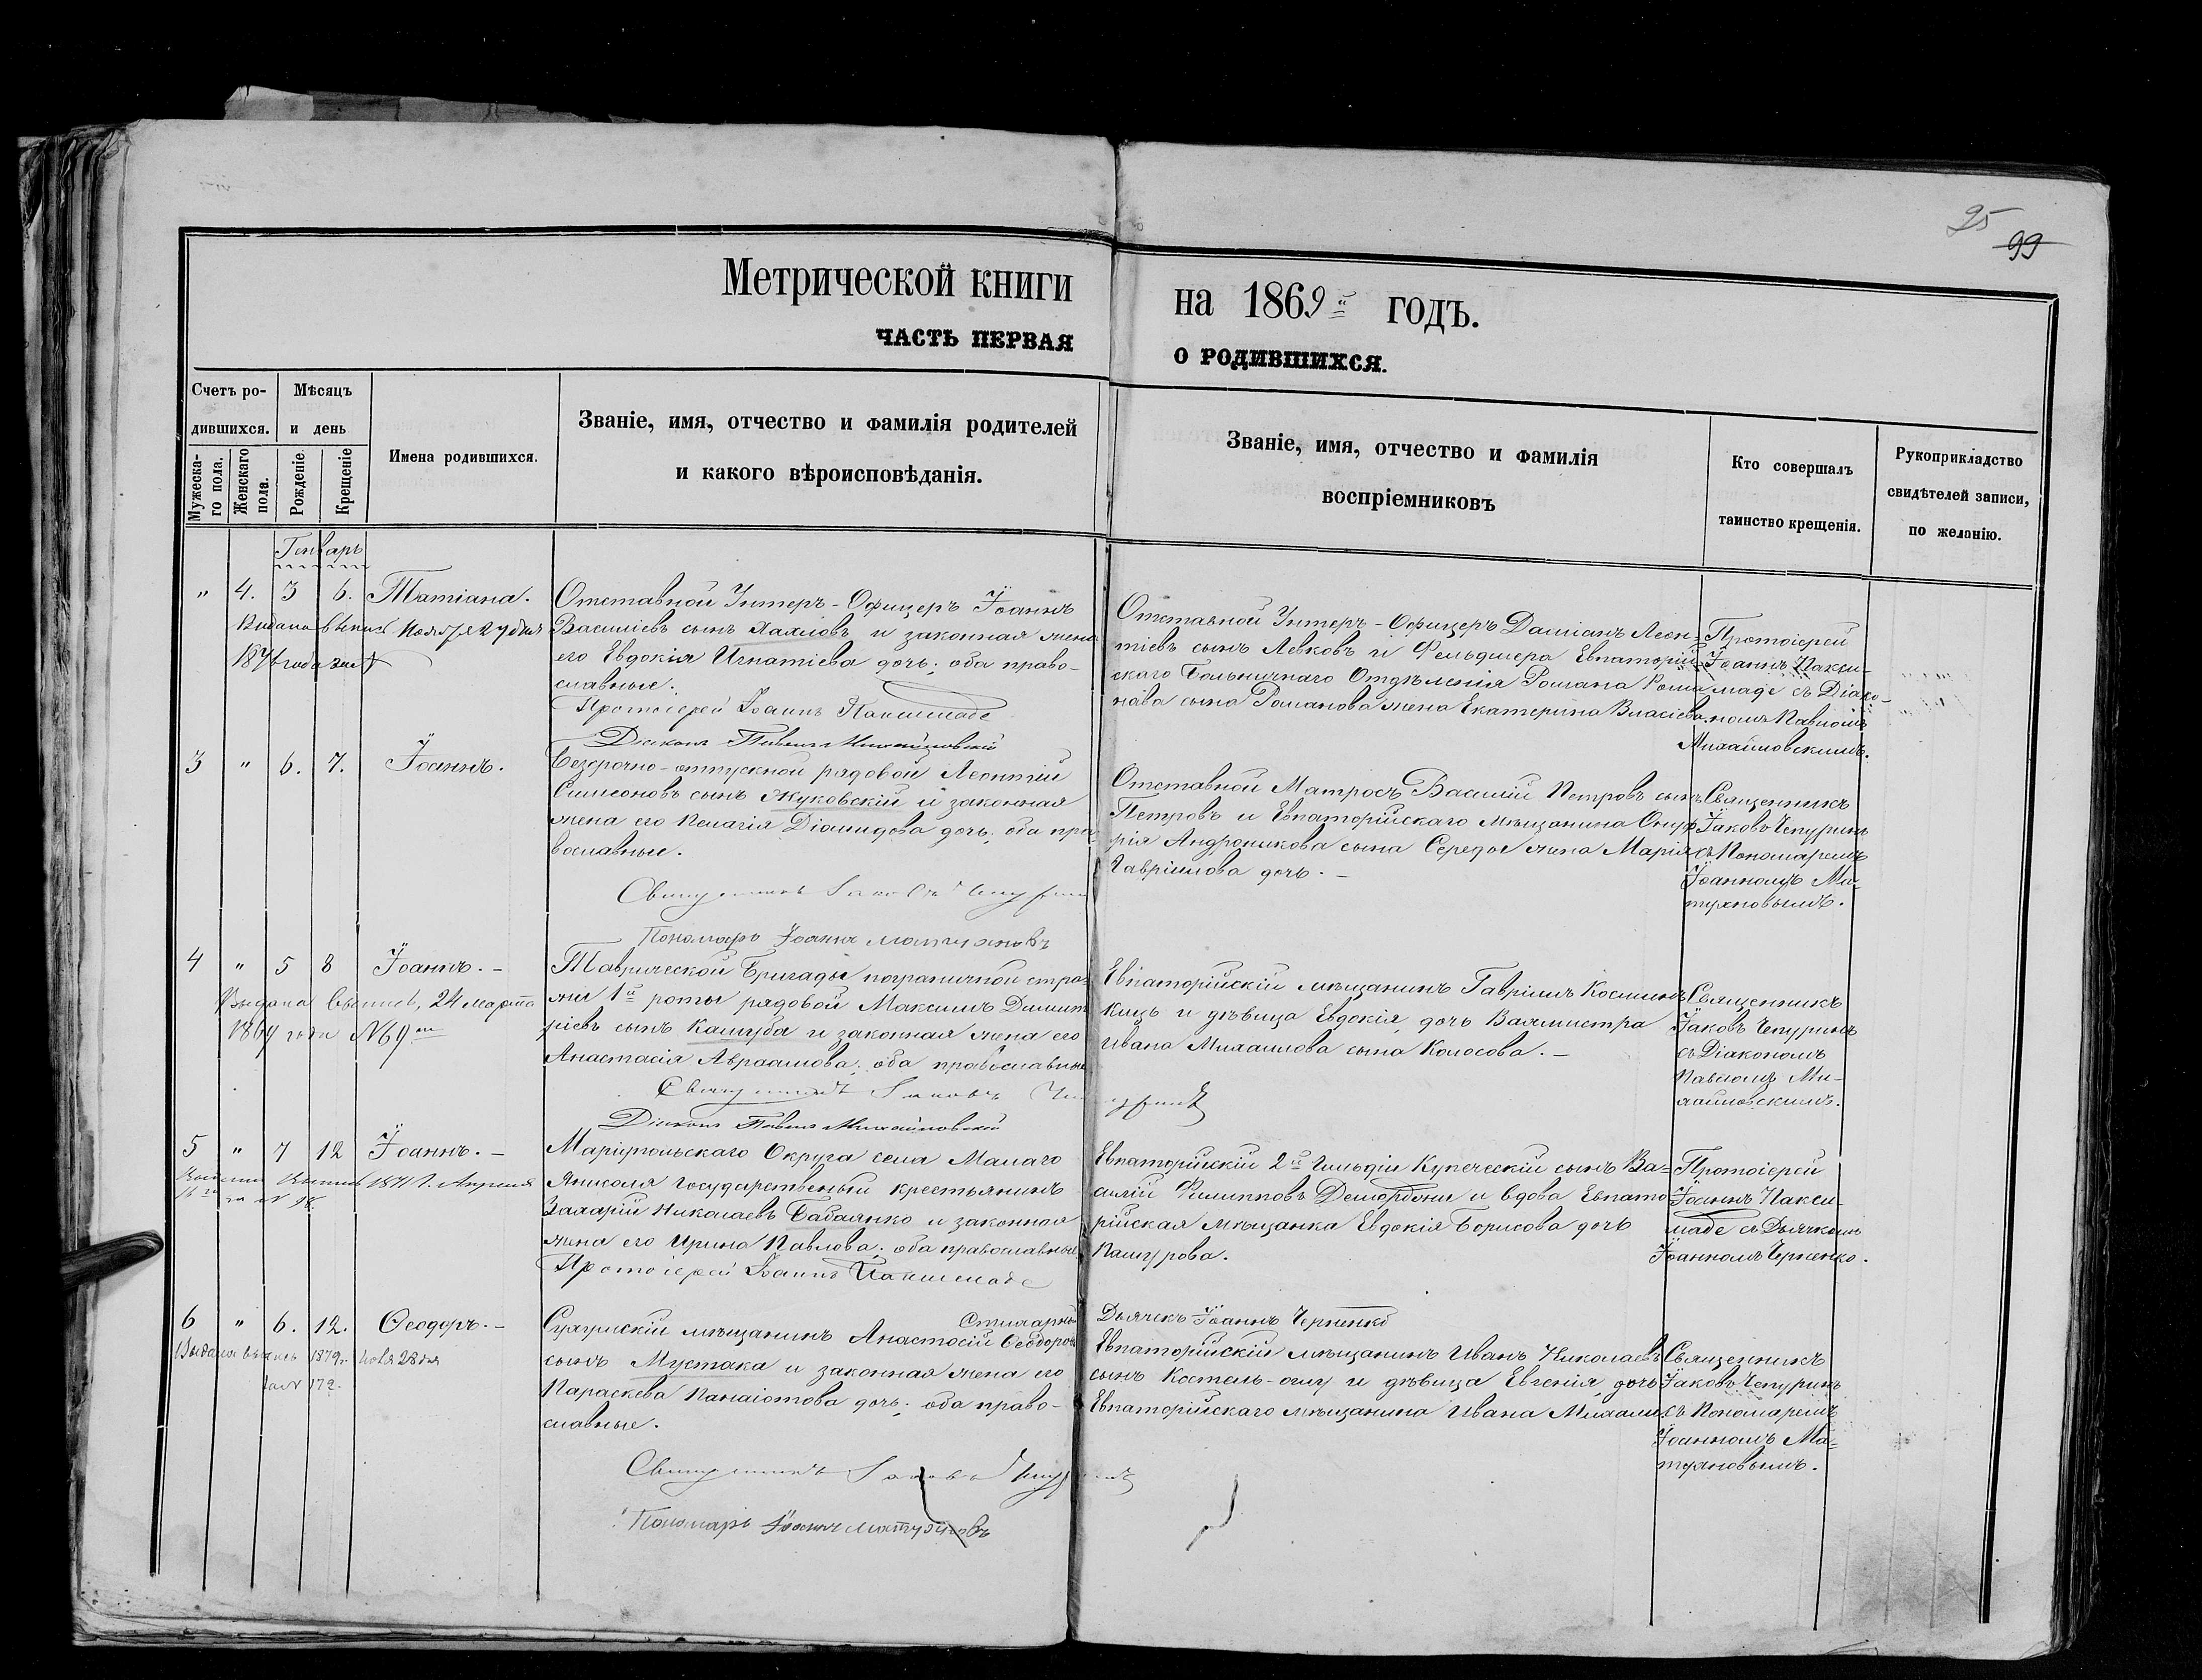 95
99
Метрической книги на 1869й годъ.
часть первая о родившихся.
Счетъ ро-
дившихся.
Мужеска-
го пола.
Женскаго
пола.
Мѣсяцъ
и день
Рожденіе.
Крещеніе
Имена родившихся.
Званіе, имя, отчество и фамилія родителей
и какого вѣроисповѣданія.
Званіе, имя, отчество и фамилія
воспріемниковъ
Кто совершалъ
таинство крещенія.
Рукоприкладство
свидѣтелей записи,
по желанію.
Генварь
" 4. 3 6. Татіана.
Отставной Унтеръ-Офицеръ Іоаннъ
Василіевъ сынъ и законная жена
его Евдокія Игнатіева дочь; оба право-
славные.
Протоіерей Іоаннъ Пакселиаде
Діаконъ Павелъ Михайловскій
Отставной Унтеръ-Офицеръ Даміанъ Леон-
тіевъ сынъ Левковъ и Фельдшера Евпаторій-
скаго Больничнаго Отдѣленія Романа Рома-
нова сына Романова жена Екатерина Власіева.
Протоіерей
Іоаннъ Паксели-
маде съ Діако-
номъ Павломъ
Михайловскимъ.
3 " 6. 7. Іоаннъ.
Безсрочно-отпускной рядовой Леонтій
Симеоновъ сынъ Жуковскій и законная
жена его Пелагія Діомидова дочь; оба пра-
вославные.
Священникъ Іаковъ Чепуринъ
Пономарь Іоаннъ Матухновъ
Отставной Матросъ Василій Петровъ сынъ
Петровъ и Евпаторійскаго мѣщанина Онуф-
рія Андроникова сына Середы жена Марія
Гавріилова дочь. -
Священникъ
Іаковъ Чепуринъ
съ Пономаремъ
Іоанномъ Ма-
тухновымъ.
4 " 5 8 Іоаннъ. -
Выдана выпись, 24 марта
1869 года №69
Таврической Бригады пограничной стра-
жи 1й роты рядовой Максимъ Димит-
ріевъ сынъ Кашуба и законная жена его
Анастасія Авраамова; оба православные
Священникъ Іаковъ Чепуринъ
Діаконъ Павелъ Михайловскій
Евпаторійскій мѣщанинъ Гавріилъ
и дѣвица Евдокія, дочь Вахмистра
Ивана Михаилова сына Колосова. -
Священникъ
Іаковъ Чепуринъ
съ Діакономъ
Павломъ Ми-
хайловскимъ.
5 " 7 12 Іоаннъ. -
Маріупольскаго Округа села Малаго
Яниколя государственный крестьянинъ
Захарій Николаевъ Бабаянко и законная
жена его Ирина Павлова; оба православные
Протоіерей Іоаннъ Пакселиаде
Дьячекъ Іоаннъ Черненко
Евпаторійскій 2й Гильдіи Купеческій сынъ Ва-
силій Филипповъ и вдова Евпато-
рійская мѣщанка Евдокія Борисова дочь
Пашурова.
Протоіерей
Іоаннъ Паксели-
маде съ Дьячкомъ
Іоанномъ Черненко.
6 " 6. 12. Ѳеодоръ. -
Выдана выпись 1879 г. 28 дня
за № 172.
мѣщанинъ Анастасій Ѳеодоровъ
сынъ Мустака и законная жена его
Параскева Панаіотова дочь; оба право-
славные.
Священникъ Іаковъ Чепуринъ
Пономарь Іоаннъ Матухновъ
Евпаторійскій мѣщанинъ Иванъ Николаевъ
сынъ Костель-оглу и дѣвица Евгенія, дочь
Евпаторійскаго мѣщанина Ивана
Священникъ
Іаковъ Чепуринъ
съ Пономаремъ
Іоанномъ Ма-
тухновымъ.